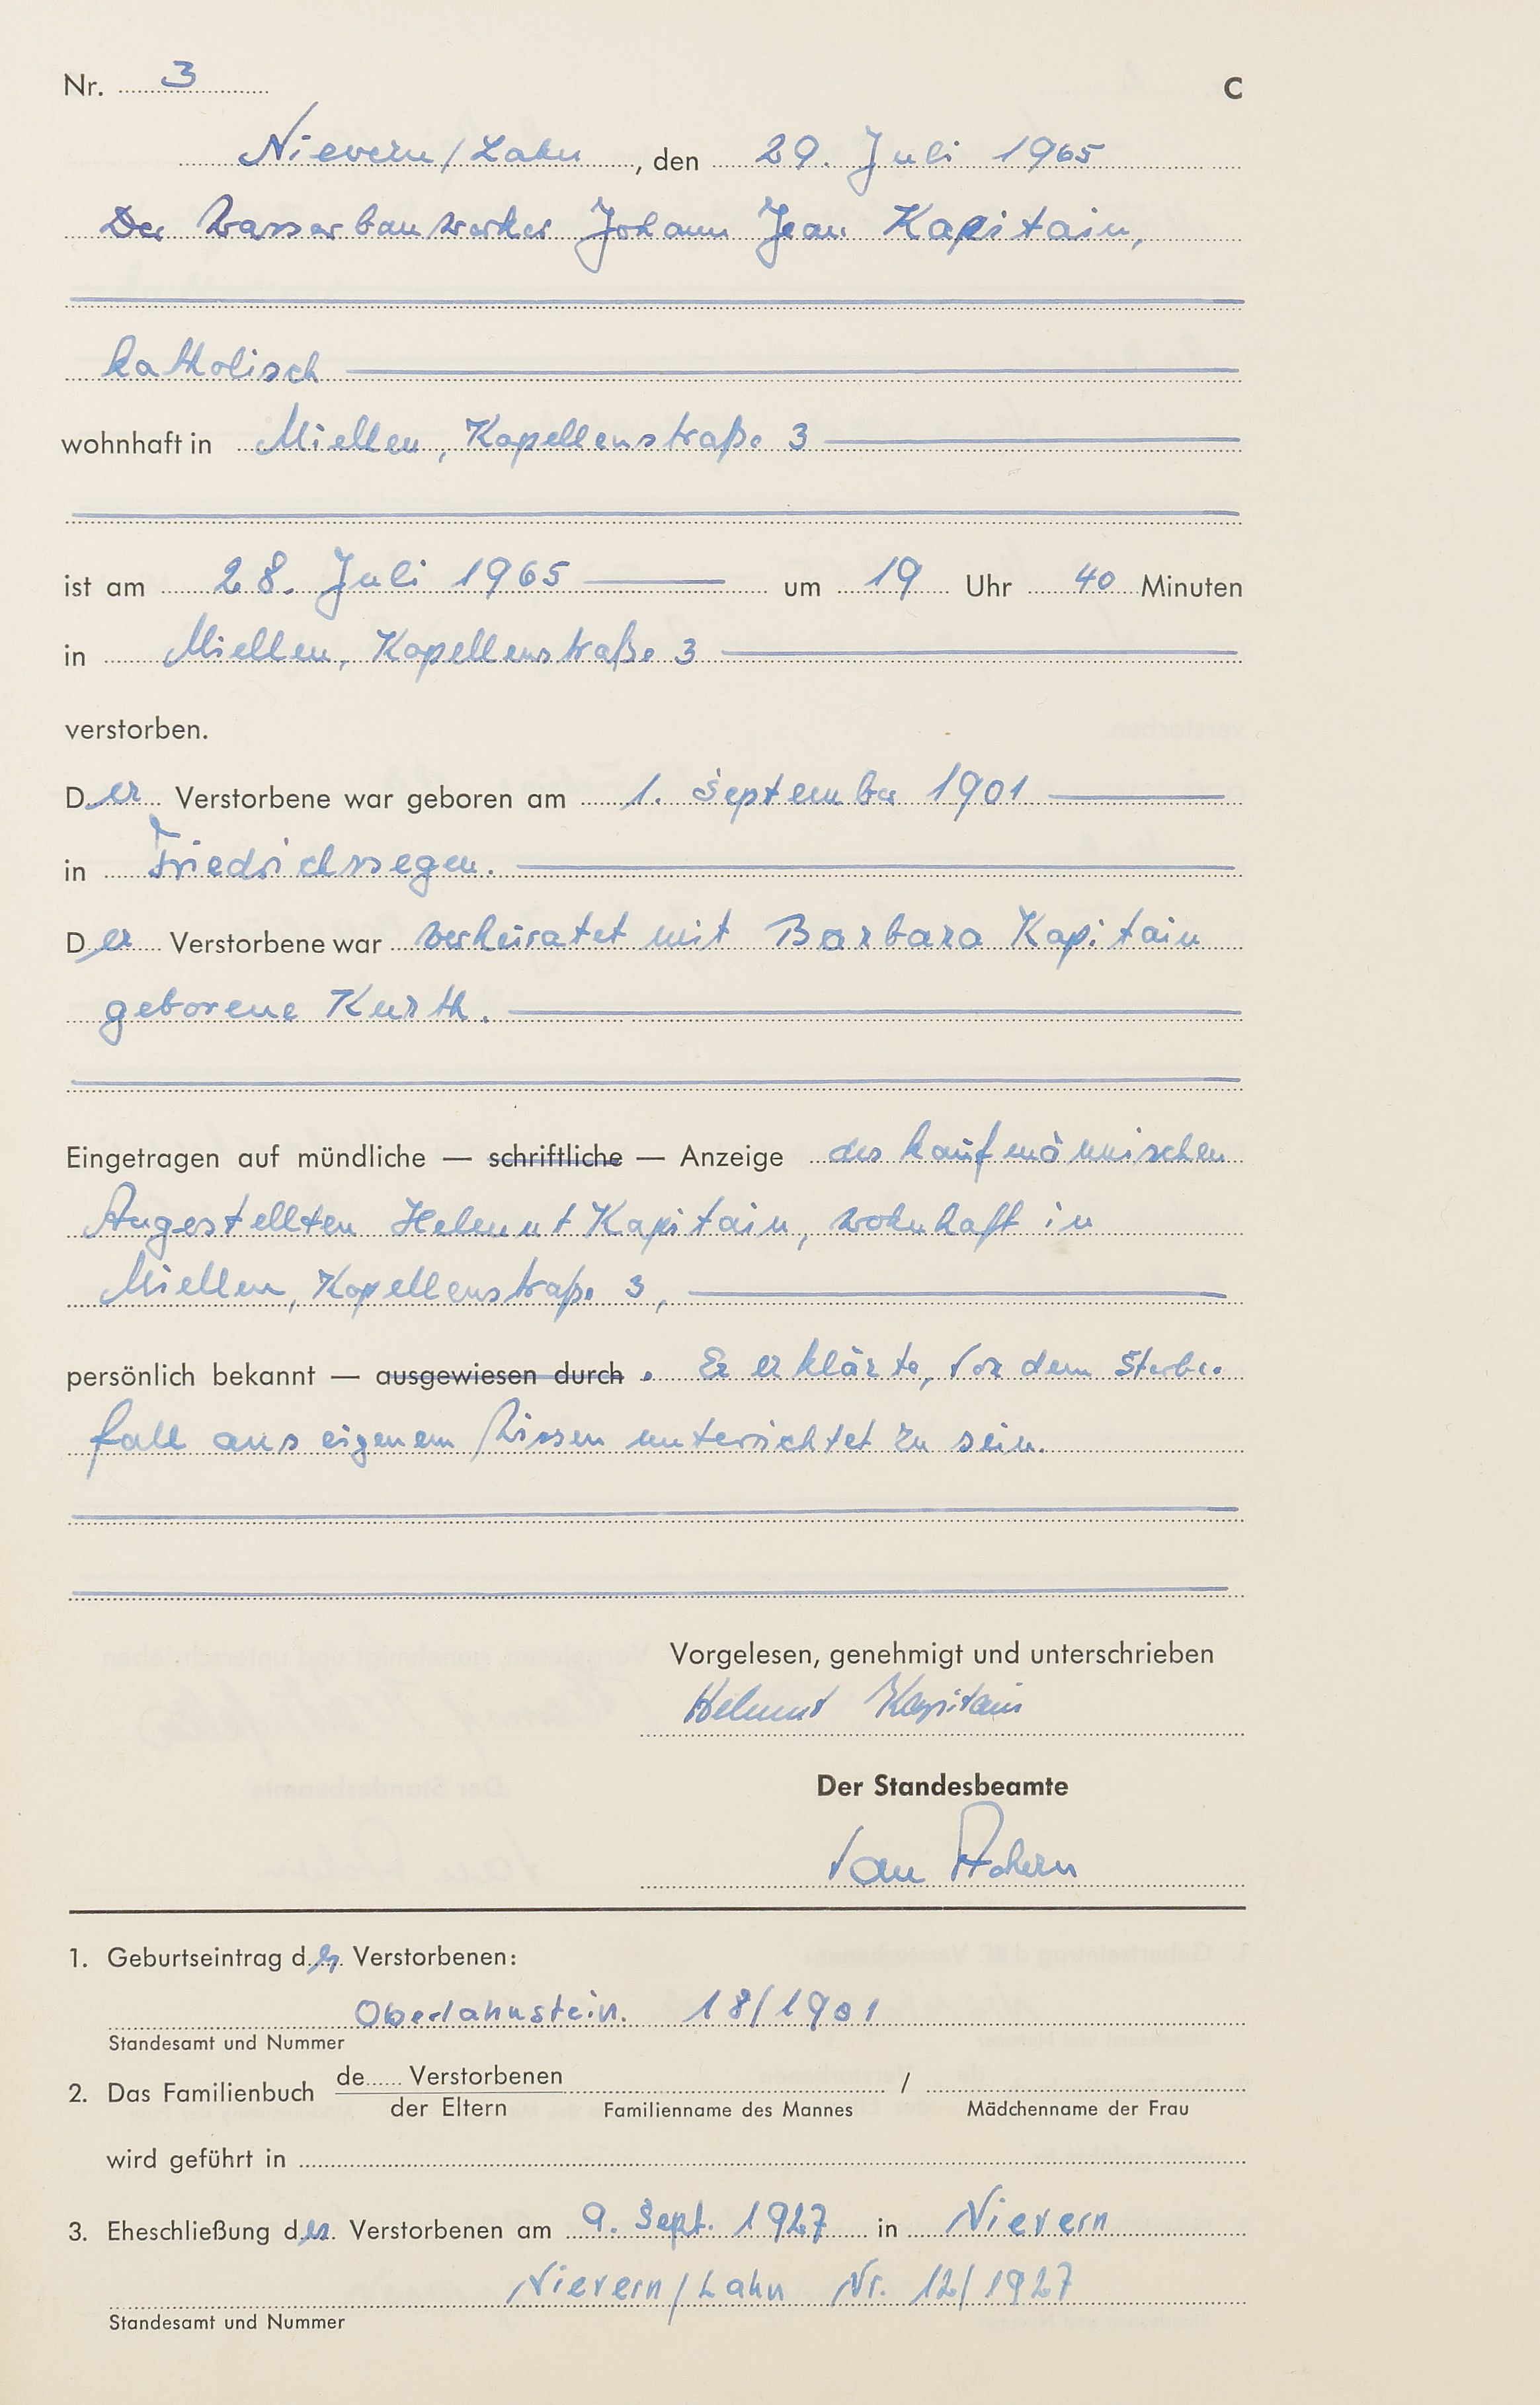 Nr. 3 C
Nievern/Lahn, den 29. Juli 1965
Der Wasserbauwerker Johann Jean Kapitain,
katholisch
wohnhaft in Miellen, Kapellenstraße 3
ist am 28. Juli 1965 um 19 Uhr 40 Minuten
in Miellen, Kapellenstraße 3
verstorben.
Der Verstorbene war geboren am 1. September 1901
in Friedrichssegen.
Der Verstorbene war verheiratet mit Barbara Kapitain
geborene Kurth.
Eingetragen auf mündliche — schriftliche — Anzeige des kaufmännischen
Angestellten Helmut Kapitain, wohnhaft in
Miellen, Kapellenstraße 3,
persönlich bekannt — ausgewiesen durch . Er erklärte, von dem Sterbe-
fall aus eigenem Wissen unterrichtet zu sein.
Vorgelesen, genehmigt und unterschrieben
Helmut Kapitain
Der Standesbeamte
1. Geburtseintrag des Verstorbenen:
Oberlahnstein. 18/1901
Standesamt und Nummer
2. Das Familienbuch de...... Verstorbenen /
der Eltern Familienname des Mannes Mädchenname der Frau
wird geführt in
3. Eheschließung des Verstorbenen am 9. Sept. 1927 in Nievern
Nievern/Lahn Nr. 12/1927
Standesamt und Nummer